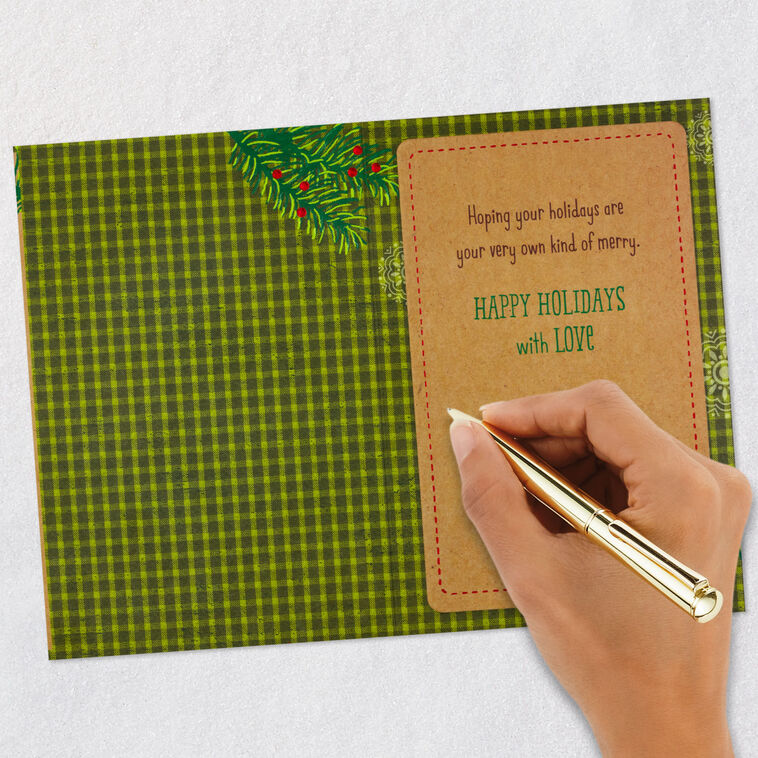 Hoping your holidays are
your very own kind of merry.
HAPPY HOLIDAYS
with LOVE